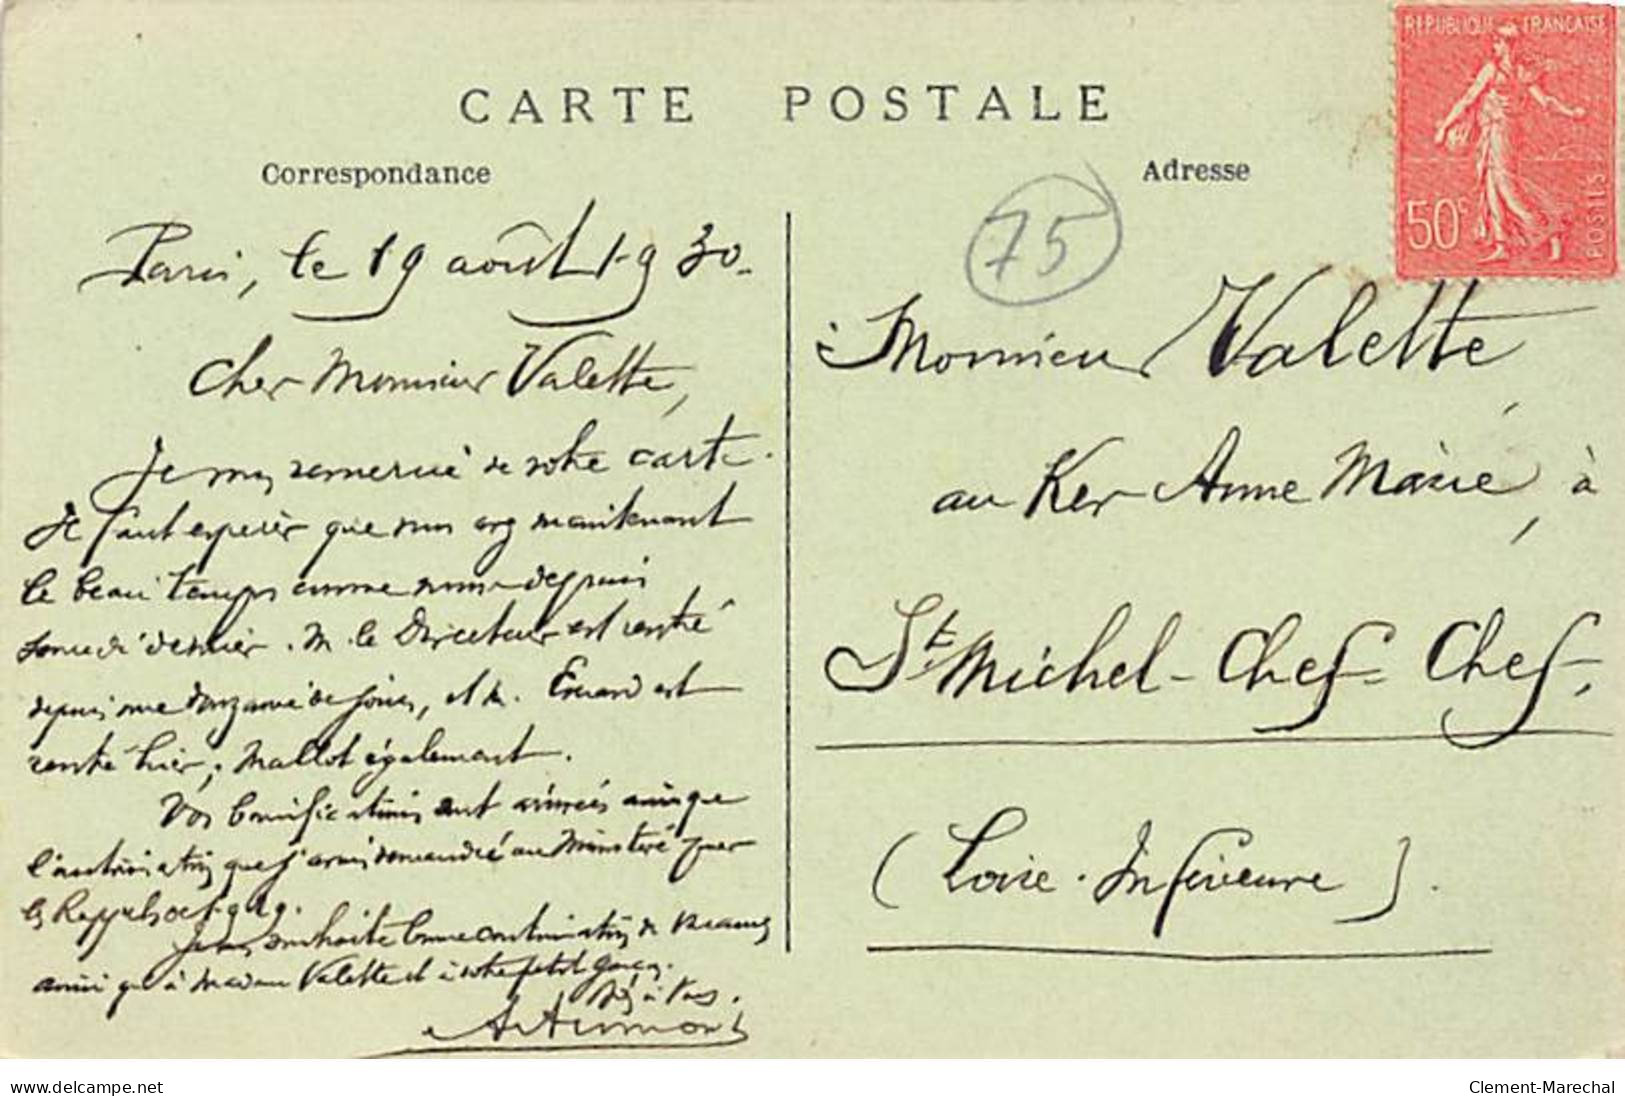 CARTE POSTALE
Correspondance
Paris, le 19 août 1930.
Cher Monsieur Valette,
Je vous remercie de votre carte.
Il faut espérer que vous avez maintenant
le beau temps comme nous depuis
samedi dernier. M. le Directeur est rentré
depuis une douzaine de jours, et M. est
rentré hier, Mallot également.
Vos bonifications sont arrivées ainsi que
l'autorisation que j'avais demandée au Ministère pour
les
Je vous souhaite bonne continuation de vacances
ainsi qu'à Madame Valette et à votre petit garçon.
Bien à vous.
Adresse
75
RÉPUBLIQUE FRANÇAISE
50c
POSTES
à Monsieur Valette
au Ker Anne Marie, à
St Michel-Chef-Chef,
(Loire-Inférieure).
www.delcampe.net
Clement-Marechal